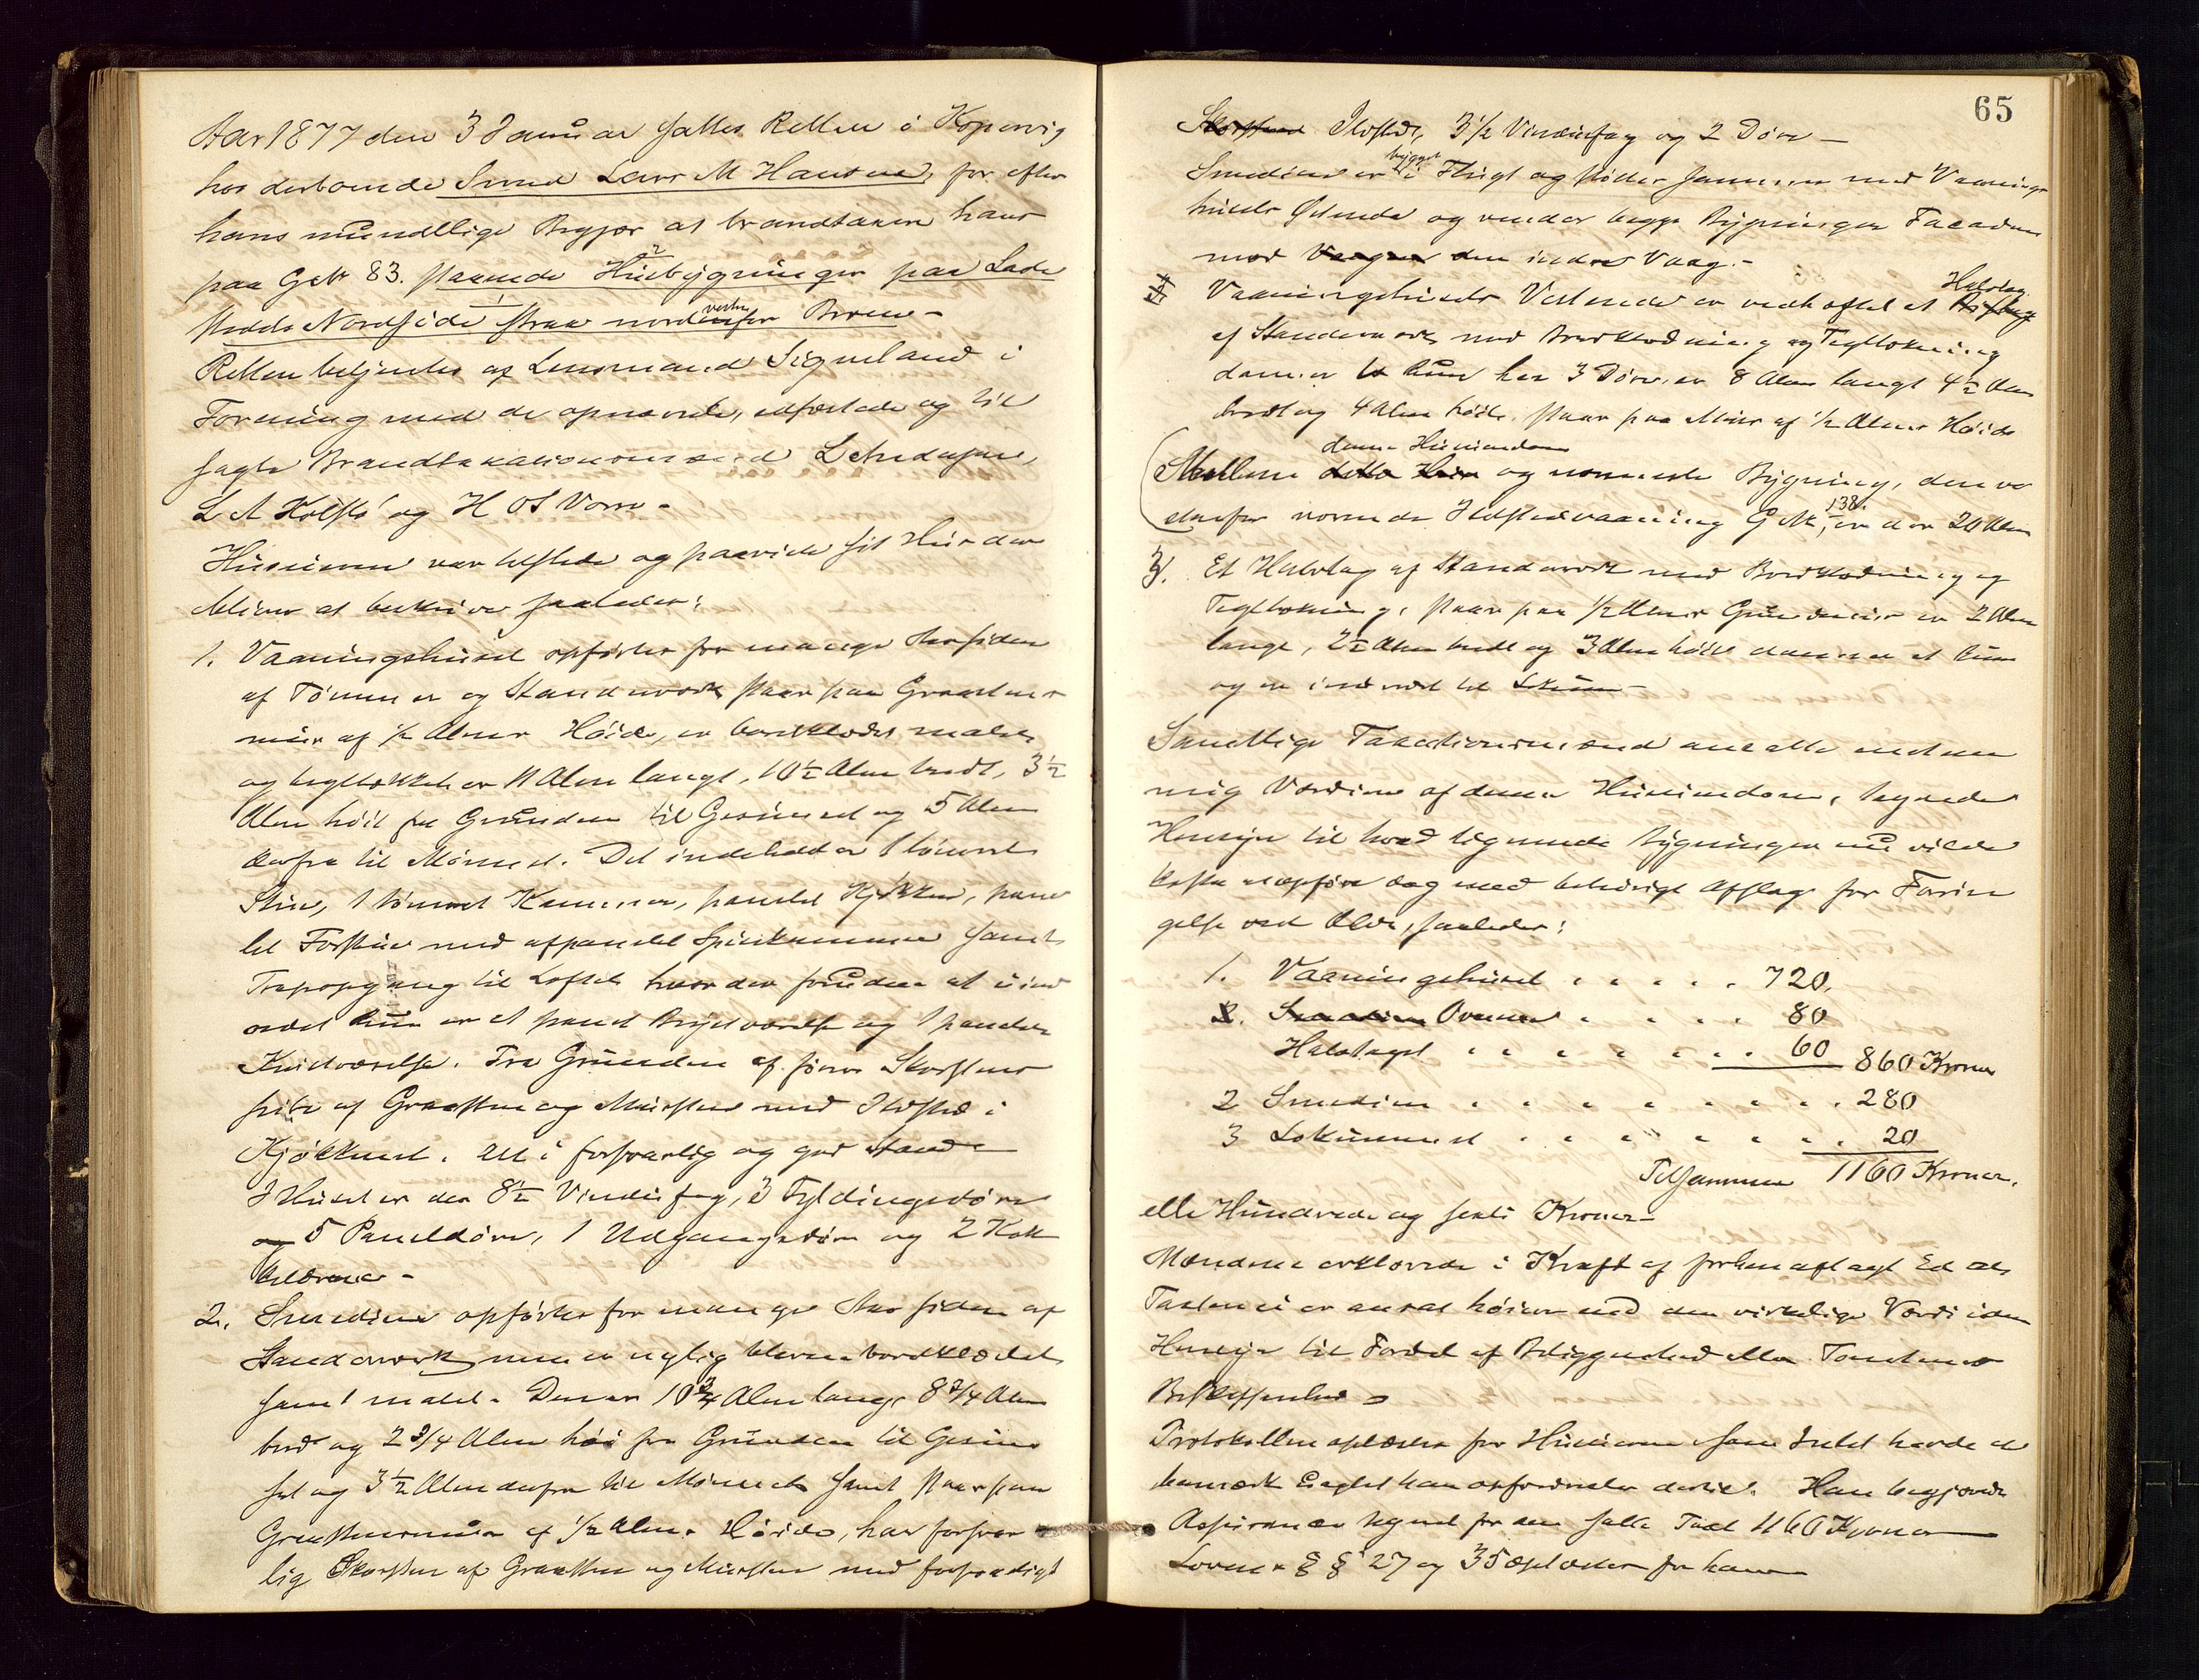 Aar 1877 den 3 Januar sattes Retten i Kopervig
hos derboende Smed Lars M Hansen, for efter
hans mundtlige Begjær at brandtaxere hans
paa G No 83. staaende 2 Husbygninger paa Lade
stedets Nordside strax norden vesten for Broen -
Retten betjentes af Lensmand Signeland i
Forening med de opnævnte, edfæstede og til
sagte Brandtaxationsmænd L
L A Kolstø og H O S Vorre -
Huseieren var tilstede og paaviste sit Hus der
blever at beskrive saaledes:
1. Vaaningshuset opførtes for mange Aar siden
af Tømmer og Standværk staar paa Graastens
muur af 1/2 Alens Høide, er bordklædt malet
og tegltækket er 11 Alen langt, 10 1/2 Alen bredt, 3 1/2
Alen høit fra Grunden til Gesimset og 5 Alen
derfra til Mønnet. Det indeholder 1 tømret
Stue, 1 tømret Kammer, panelet Kjøkken, pane
let Forstue med afpanelet Spisekammer samt
Trapopgang til Loftet hvor der foruden et uind
redet Rum er et panelt Bryst værelse og 1 panelet
Kvistværelse. Fra Grunden af fører Skorstens
pibe af Graasten og Muursten med Ildsted i
Kjøkkenet. Alt i forsvarlig og god Stand -
I Huset er der 8 1/2 Vinduefag, 3 Fyldingsdøre
og 5 Paneldøre, 1 Udgangsdør og 2 Kak
kelovne -
2. Smedien opførtes for mange Aar siden af
Standværk men er nylig bleven bordklædet
samt malet - Den er 10 3/4 Alen lang, 8 3/4 Alen
bred og 2 3/4 Alen høi fra Grunden til Gesim
set og 3 1/2 Alen derfra til Mønnet samt staar paa
Graastensmuur af 1/2 Alens Høide, har forsvar
lig Skorsten af Graasten og Muursten med forsvarligt
65
Skorsten Ildsted, 3 1/2 Vinduefag og 2 Døre -
Smedien er bygget i Flugt og støder sammen med Vaanings
husets Østende og vender begge Bygninger Facaden
mod Vaagen den indre Vaag. -
Vaaningshusets Vestende er vedhæftet et Halvtag
af Standværk med Bordklædning og Tegltækning
danner et Rum har 3 Døre, er 8 Alen langt 4 1/2 Alen
bredt og 4 Alen høit. staar paa Muur af 1/2 Alens Høide
(Mellem dette Huus denne Huseiendom og nærmeste Bygning, den ve
stenfor værende Ildstedvaaning G No 138, er der 20 Alen
3. Et Halvtag af Standværk med Bordklædning og
Tegltækning, staar paa 1/2 Alens Grundmuur er 2 Alen
langt, 2 1/2 Alen bredt og 3 Alen høit danner et Rum
og er indredet til Lokum -
Samtlige Taxationsmænd ansatte endnu
mig Værdien af denne Huseiendom, tagende
Hensyn til hvad lignende Bygninger nu vilde
koste at opføre dog med behørigt Afslag for Forrin
gelse ved Ælde, saaledes:
1. Vaaningshuset . . . . . 720.
2. Smedien Ovnene . . . . . 80
Halvtaget . . . . . . . . 60 860 Kroner
2 Smedien . . . . . . . . 280
3 Lokummet . . . . . . . . 20
Tilsammen 1160 Kroner.
elleve Hundrede og sexti Kroner -
Mændene erklærede i Kraft af forhen aflagt Ed at
Taxten ei er ansat høiere end den virkelige Værdi uden
Hensyn til Fordel af Beliggenhed eller Tomtens
Beskaffenhed -
Protokollen oplæstes for Huseieren som Intet havde at
bemærke uagtet han opfordredes dertil. Han begjærede
Assurancen tegnet for den fulde Taxt 1160 Kroner
Lovens §§ 27 og 35 oplæstes for ham -